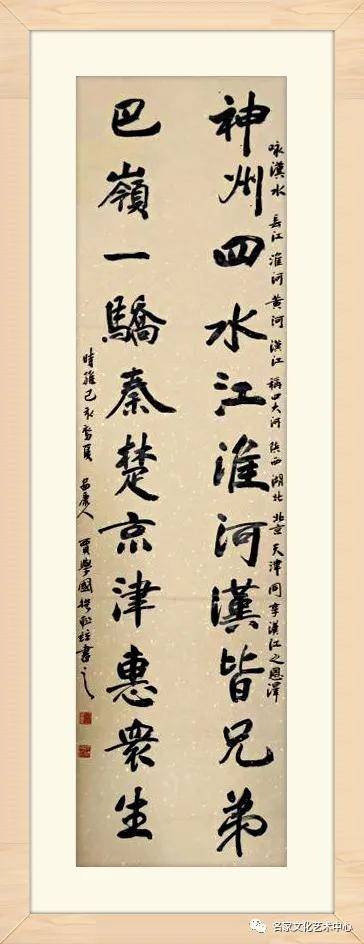 咏漢水 長江 淮河 黄河 漢江 稱四大河 陝西 湖北 北京 天津 同享漢江之恩澤
神州四水江淮河漢皆兄弟
巴嶺一驕秦楚京津惠衆生
時維己亥 安康人 賈學國 書之
名家文化艺术中心